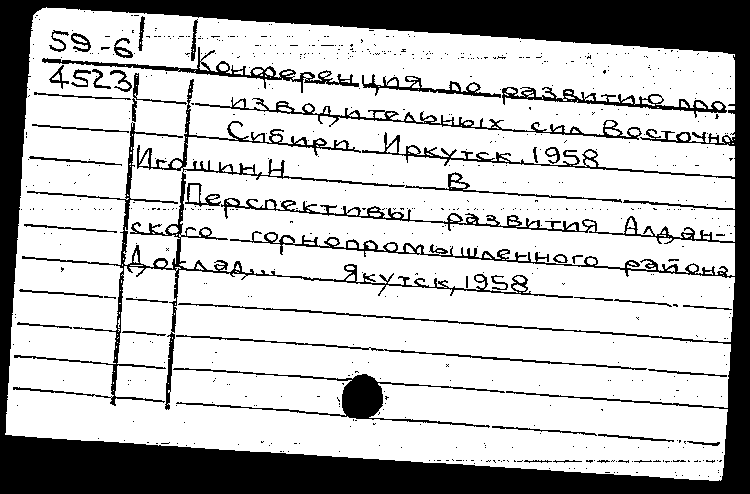 59-6
4523
Конференция по развитию про-
изводительных сил Восточно
Сибири. Иркутск, 1958
Игошин, Н В
Перспективы развития Алдан-
ского горнопромышленного района
Доклад... Якутск, 1958